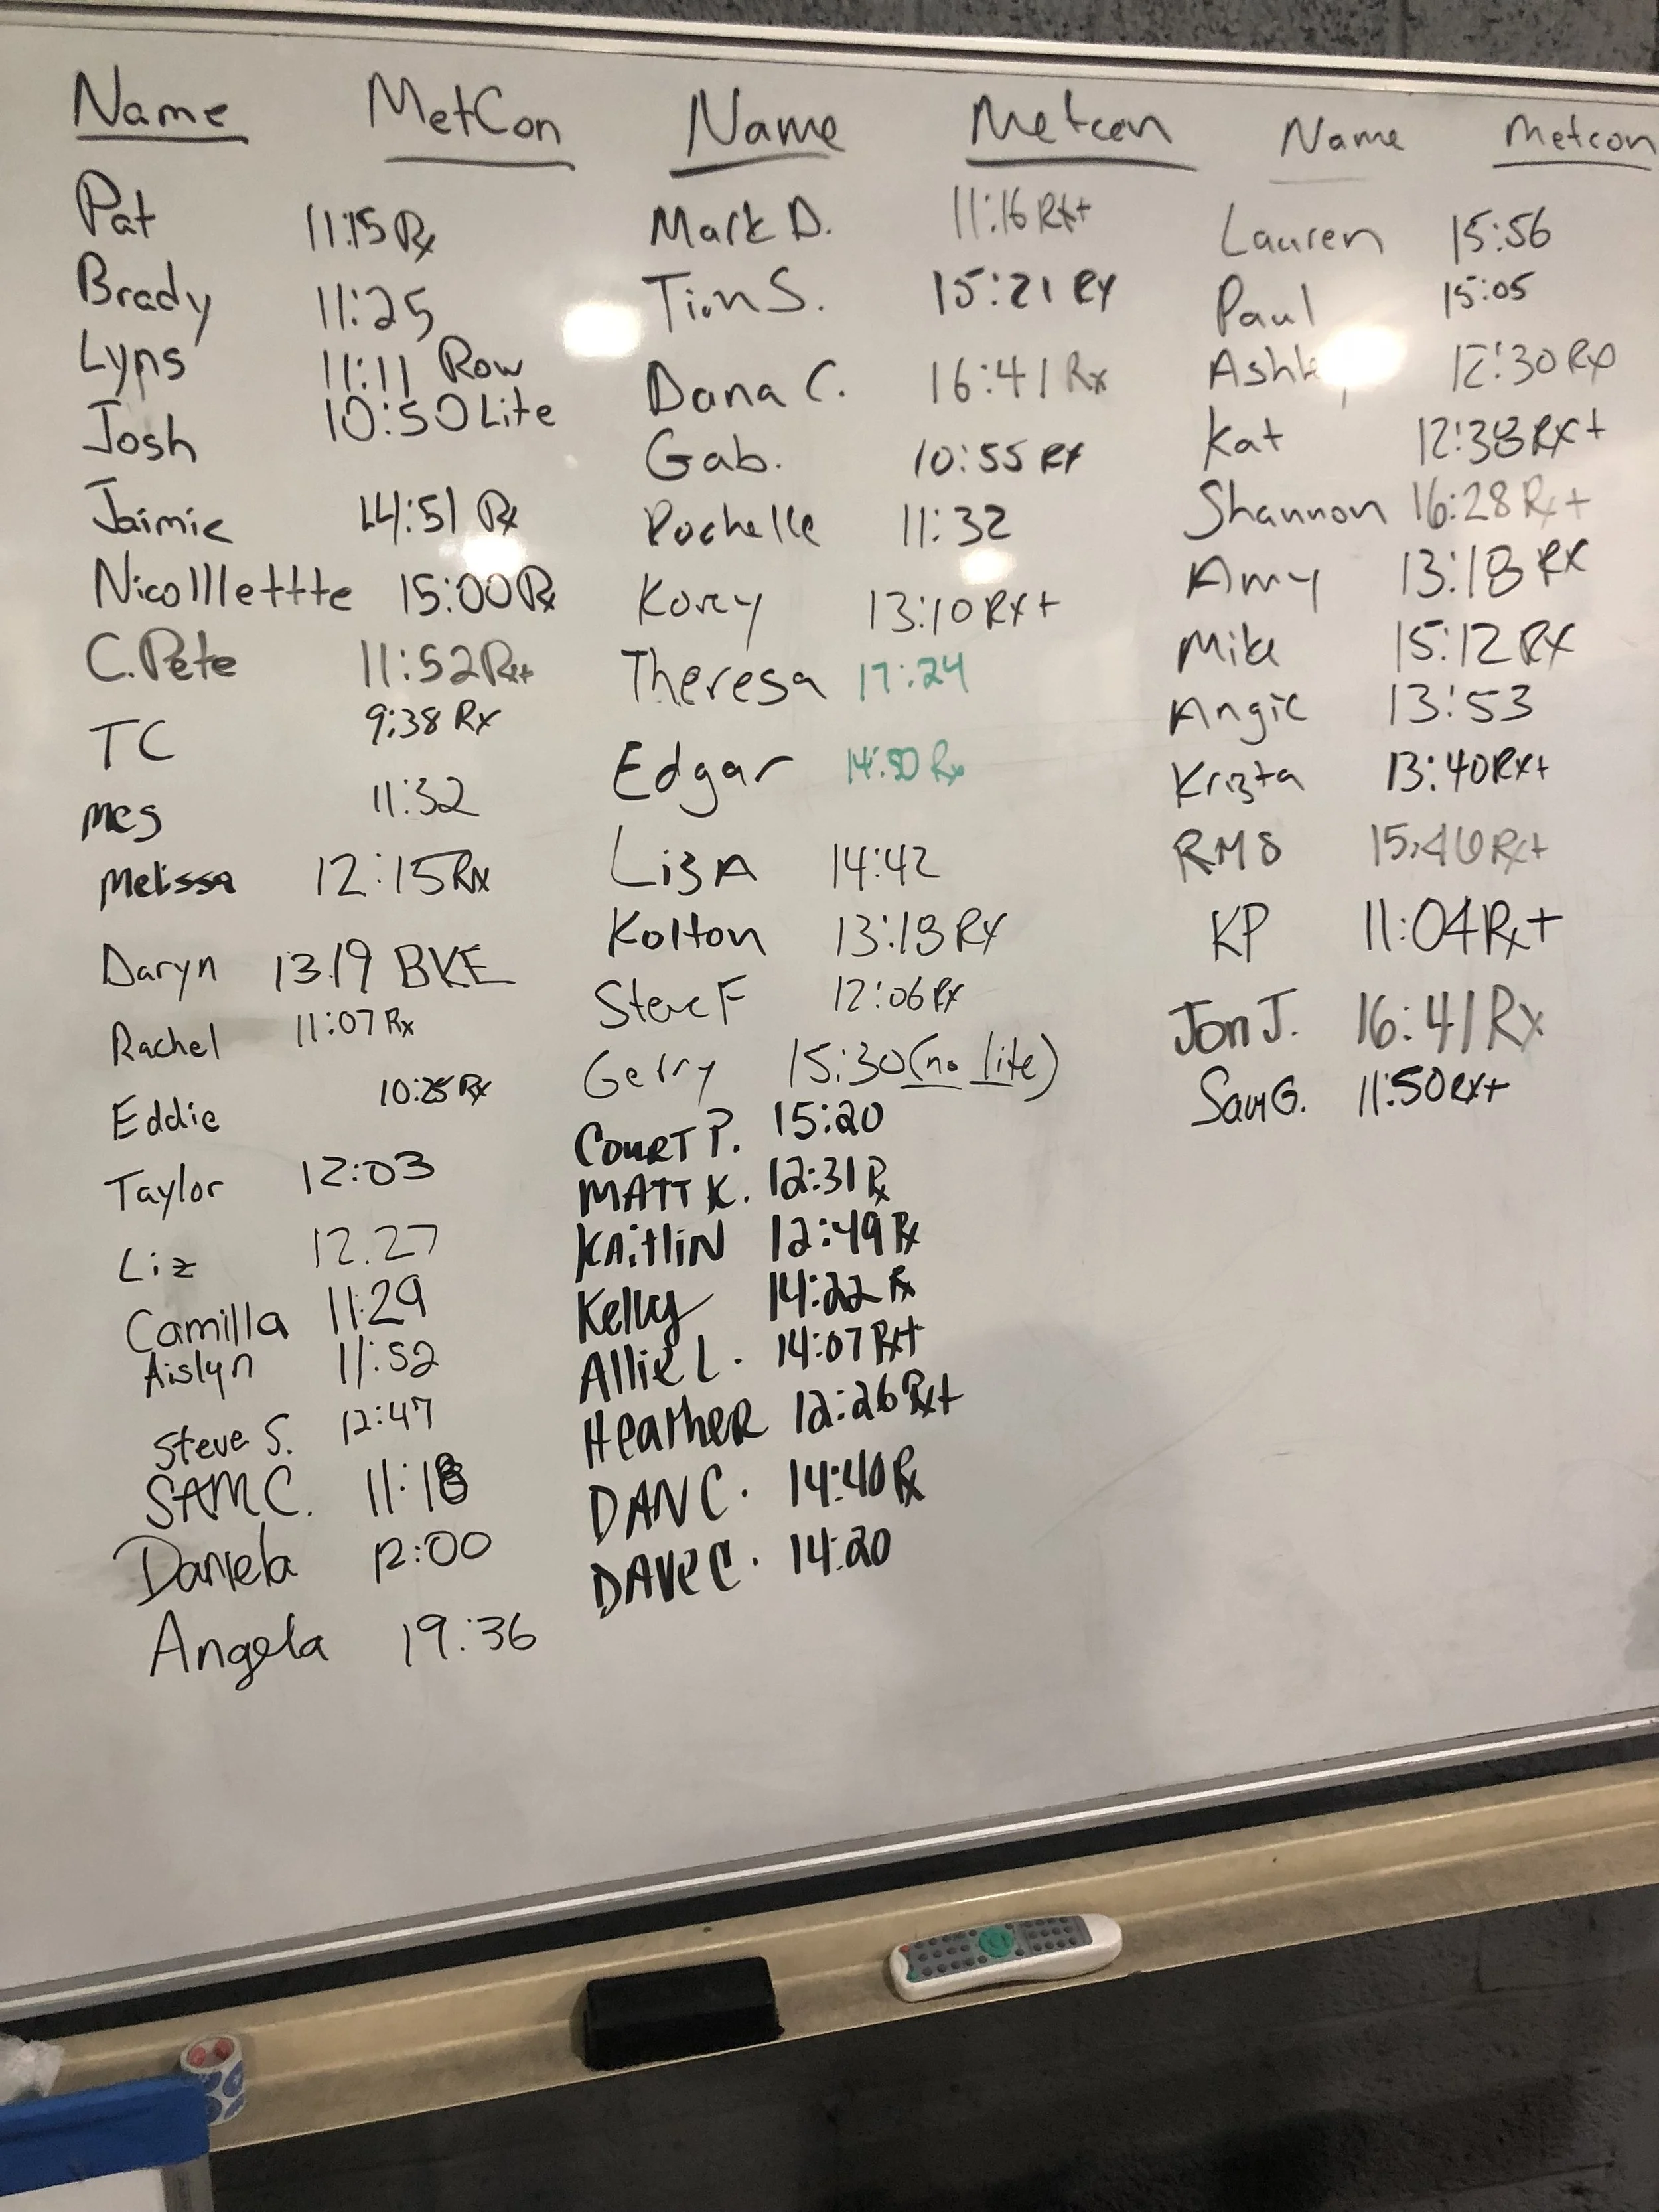 Name MetCon
Pat 11:15 Rx
Brady 11:25
Lyns 11:11 Row
Josh 10:50 Lite
Jaimie 14:51 Rx
Nicolllettte 15:00 Rx
C.Pete 11:52 Rx+
TC 9:38 Rx
Meg 11:32
Melissa 12:15 Rx
Daryn 13:19 BKE
Rachel 11:07 Rx
Eddie 10:25 Rx
Taylor 12:03
Liz 12.27
Camilla 11:29
Aislyn 11:52
Steve S. 12:47
SAM C. 11:18
Daniela 12:00
Angela 19:36
Name Metcon
Mark D. 11:16 Rx+
Tim S. 15:21 Rx
Dana C. 16:41 Rx
Gab. 10:55 Rx
Rochelle 11:32
Korey 13:10 Rx+
Theresa 17:24
Edgar Rx
Liz A 14:42
Kolton 13:18 Rx
Steve F 12:06 Rx
Gerry 15:30 (no lite)
COURT P. 15:20
MATT K. 12:31 Rx
KAitliN 12:49 Rx
Kelly 14:22 Rx
Allie L. 14:07 Rx+
HeatheR 12:26 Rx+
DAN C. 14:40 Rx
DAVE C. 14:20
Name Metcon
Lauren 15:56
Paul 15:05
12:30 Rx
Kat 12:38 Rx+
Shannon 16:28 Rx+
Amy 13:18 RX
Mike 15:12 RX
Angie 13:53
Krista 13:40 Rx+
15:46 Rx+
KP 11:04 Rx+
Jon J. 16:41 Rx
Sam G. 11:50 Rx+